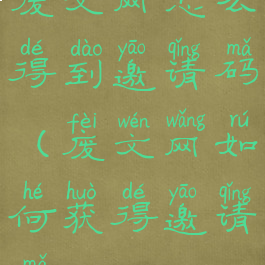 废文网怎么
dé dào yāo qǐng mǎ
得到邀请码
fèi wén wǎng rú
（废文网如
hé huò dé yāo qǐng
何获得邀请
mǎ